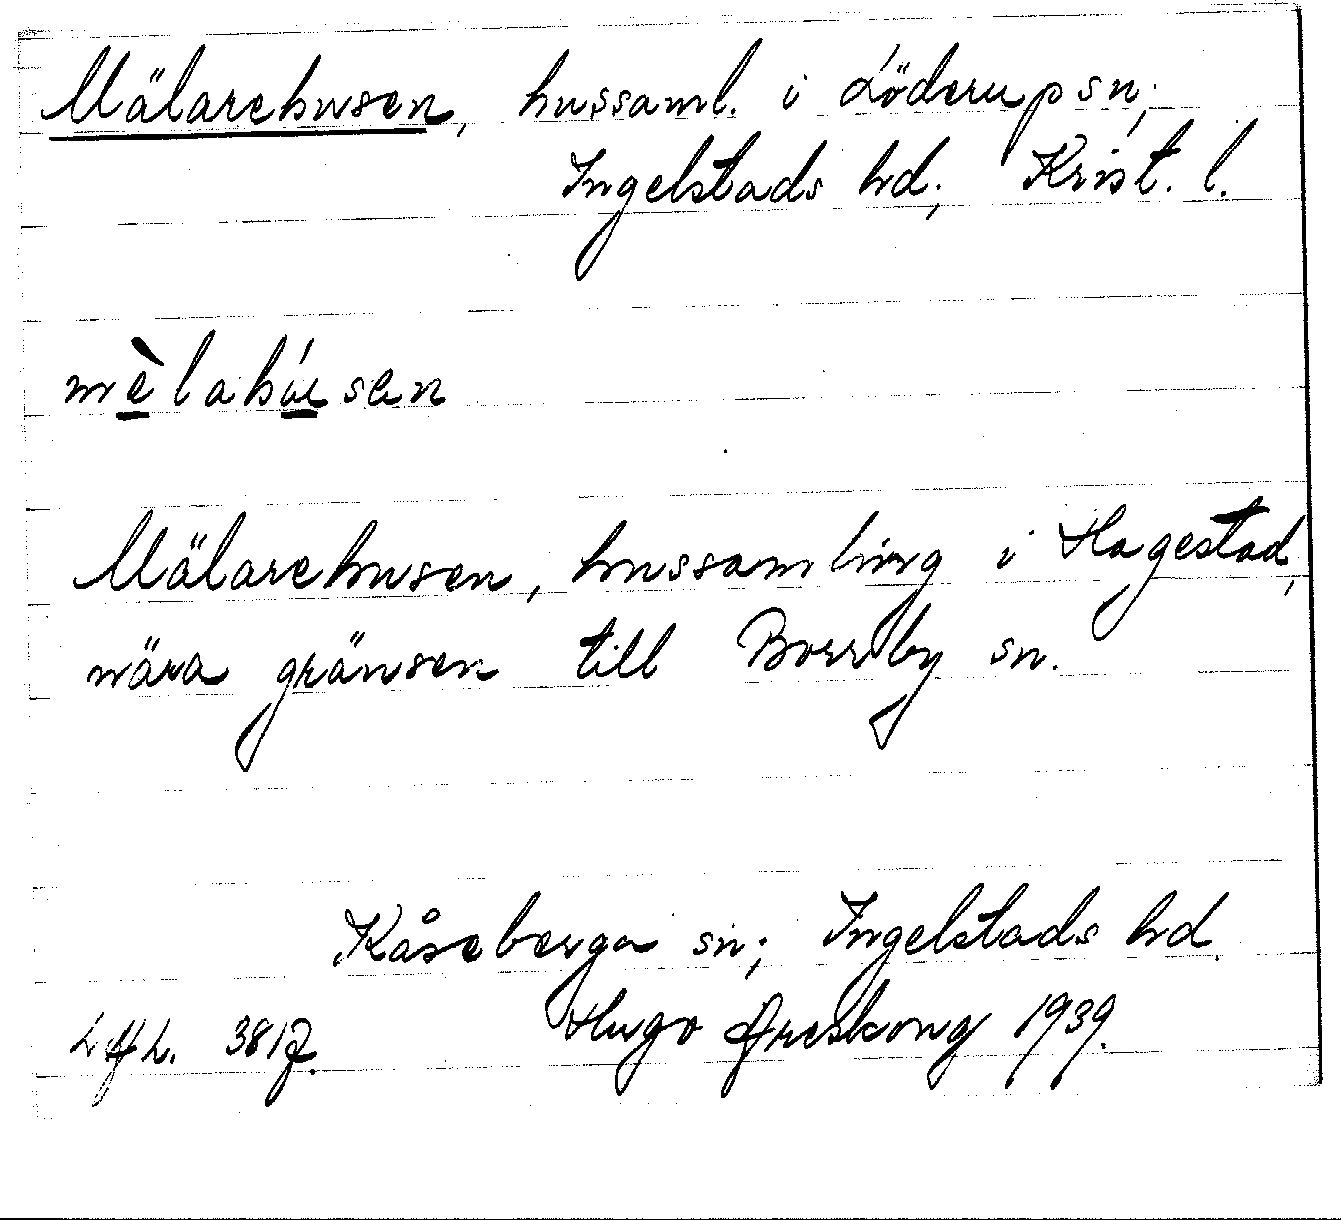 Mälarehusen, hussaml. i Löderup sn;
Ingelstads hd; Krist. l.
mèlahúsen
Mälarehusen, hussamling i Hagestad,
nära gränsen till Borrby sn.
Kåseberga sn; Ingelstads hd.
3817. Hugo Areskoug 1939.